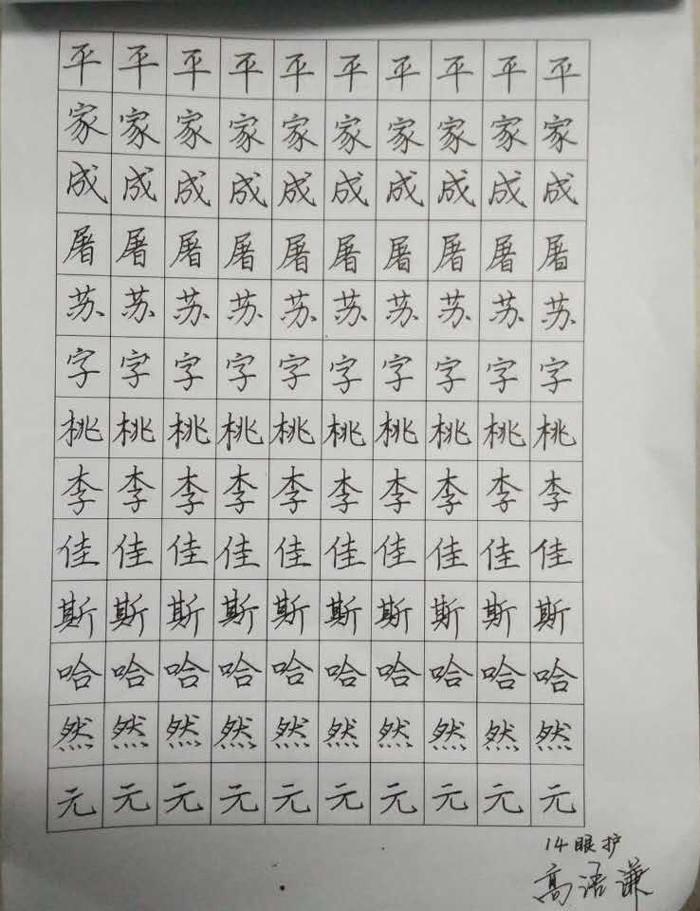 平平平平平平平平平平
家家家家家家家家家家
成成成成成成成成成成
屠屠屠屠屠屠屠屠屠屠
苏苏苏苏苏苏苏苏苏苏
字字字字字字字字字字
桃桃桃桃桃桃桃桃桃桃
李李李李李李李李李李
佳佳佳佳佳佳佳佳佳佳
斯斯斯斯斯斯斯斯斯斯
哈哈哈哈哈哈哈哈哈哈
然然然然然然然然然然
元元元元元元元元元元
14眼护
高语谦